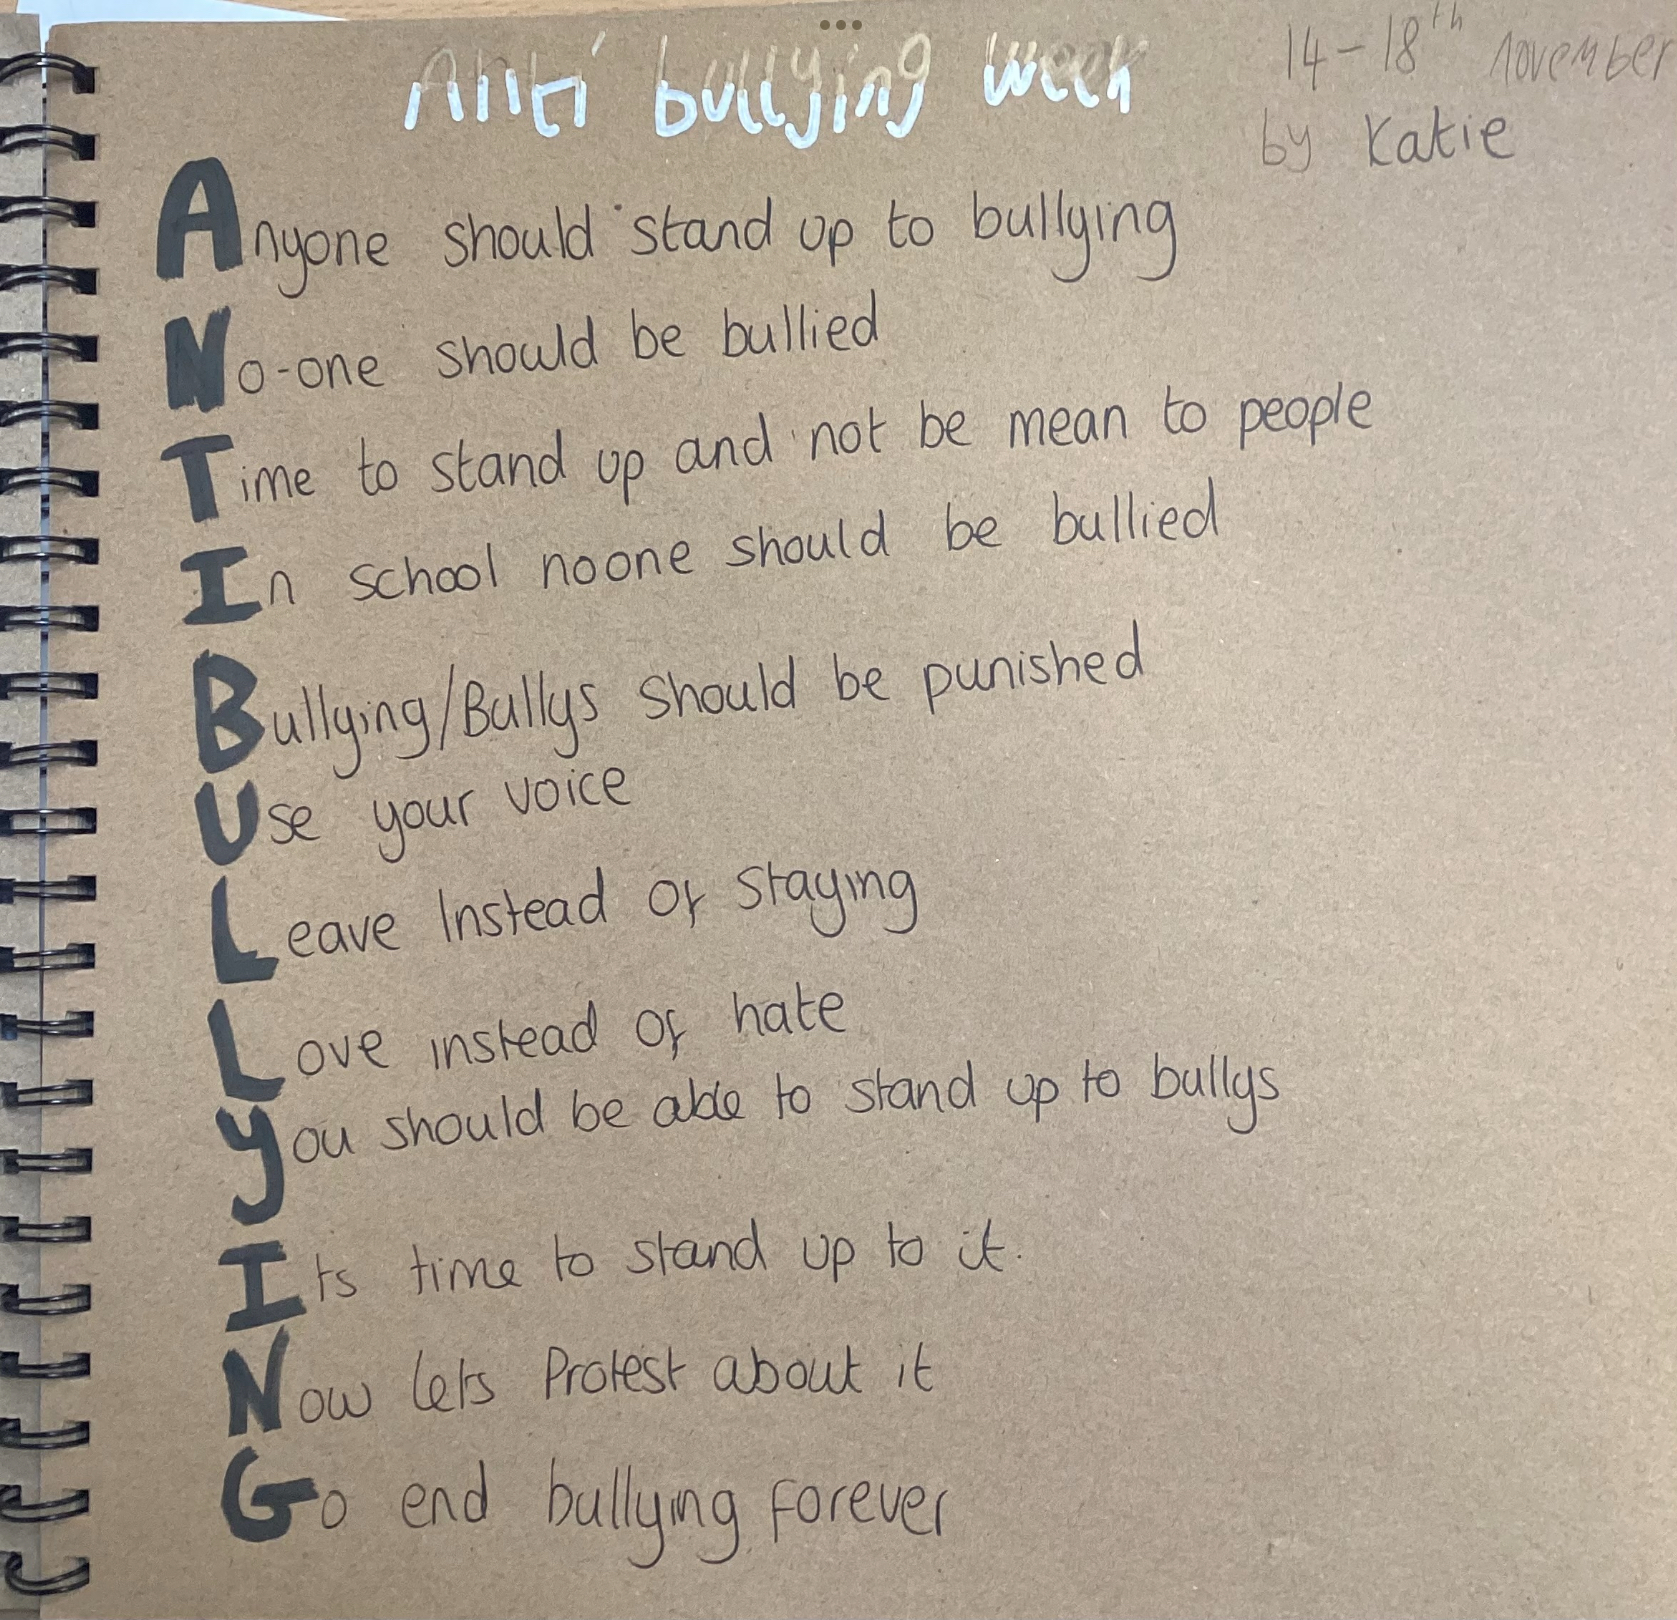 Anti bullying week
14-18th november
by Katie
Anyone should stand up to bullying
No-one should be bullied
Time to stand up and not be mean to people
In school noone should be bullied
Bullying/Bullys should be punished
Use your voice
Leave Instead of staying
Love instead of hate
You should be able to stand up to bullys
Its time to stand up to it.
Now lets Protest about it
Go end bullying forever